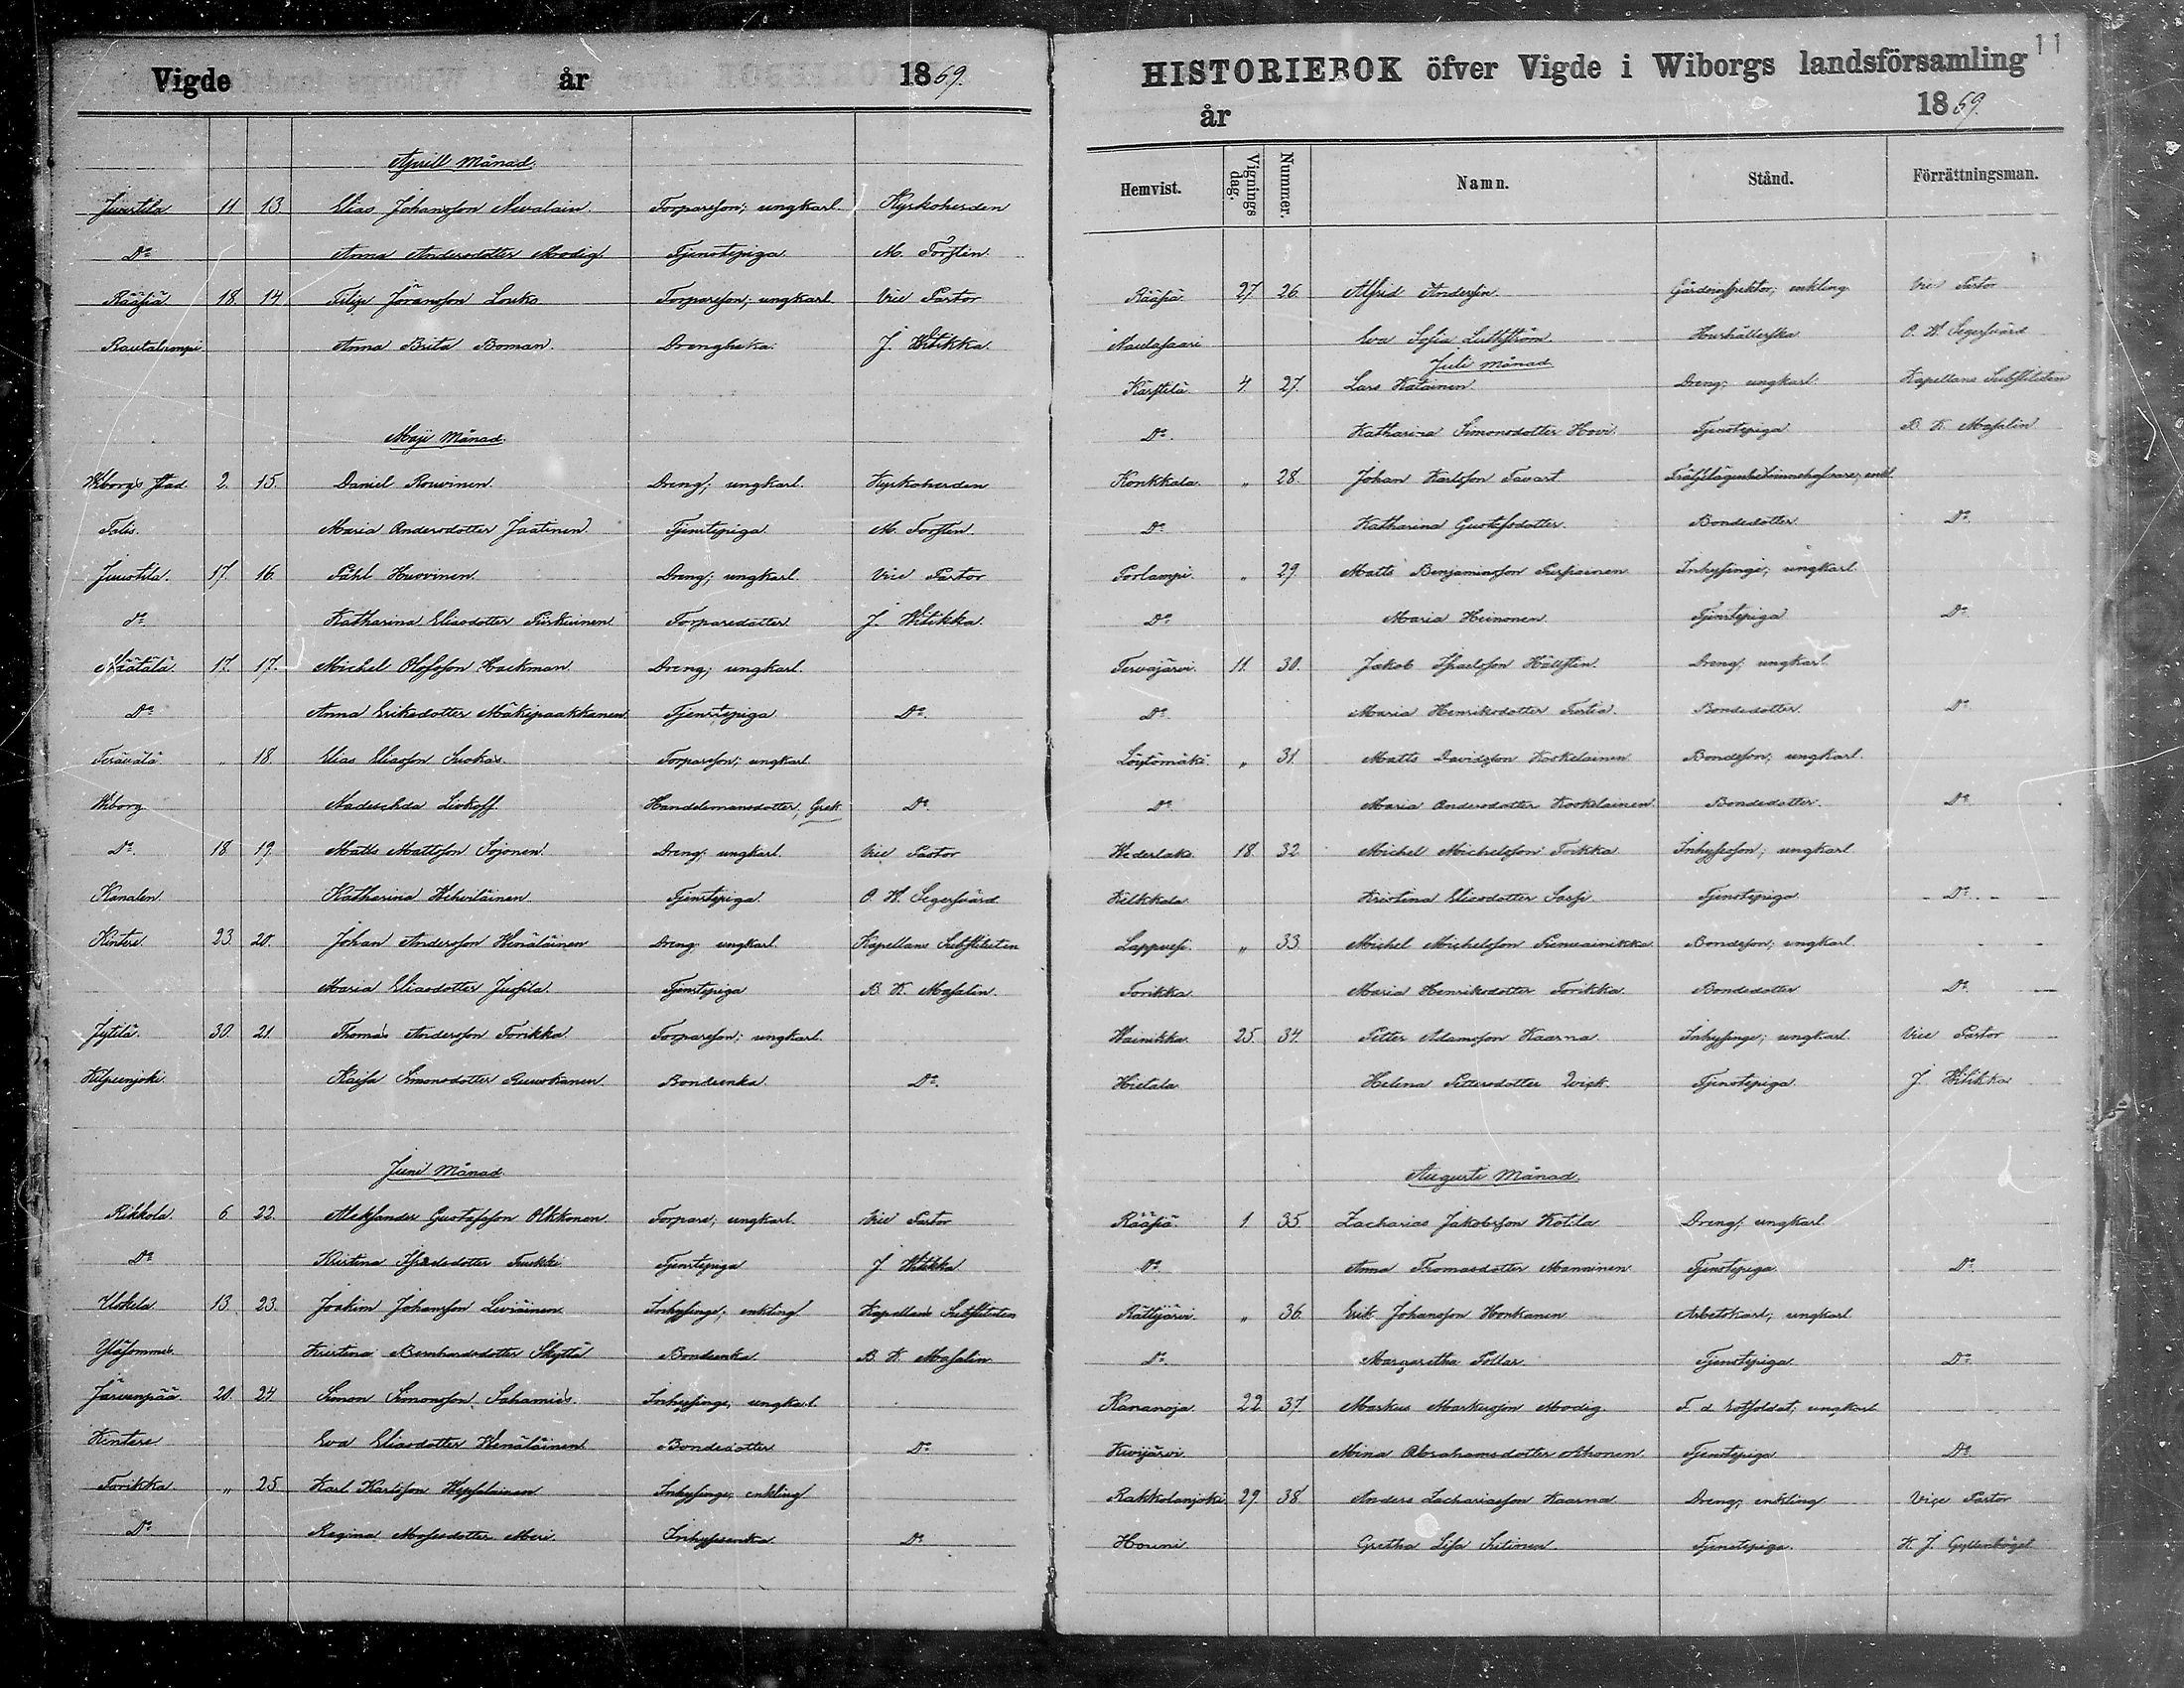 Vigde år 1869.
Aprill Månad.
Juustila 11 13. Elias Johansson Nevalain. Torpareson; ungkarl. Kyrkoherden
Do Anna Andersdotter Modig. Tjenstepiga. M. Forstén.
Rääsiä 18. 14 Filip Jöransson Louko Torpareson; ungkarl. Vice Pastor
Rautalampi Anna Brita Boman. Drengenka. J. Witikka.
Maji Månad.
Wiborgs stad. 2. 15. Daniel Rouvinen. Dreng; ungkarl. Kyrkoherden
Talis. Maria Andersdotter Jaatinen. Tjenstepiga. M. Forstén.
Juustila. 17. 16. Påhl Huovinen. Dreng; ungkarl. Vice Pastor
do Katharina Eliasdotter Torparedotter. J. Witikka.
17. 17. Michel Olofsson Hackman. Dreng; ungkarl.
Do Anna Eriksdotter Mäkipaakkanen. Tjenstepiga. Do.
Terävälä „ 18. Elias Eliasson Suokas. Torpareson; ungkarl.
Wiborg. Nadeschda Handelsmansdotter; Grek. Do.
Do. 18 19. Matts Mattsson Sojonen. Dreng; ungkarl. Vice Pastor
Kanalen. Katharina Wihviläinen. Tjenstepiga. O. W. Segersvärd
Kintere. 23. 20. Johan Andersson Wenäläinen Dreng; ungkarl. Kapellans Substituten
Maria Eliasdotter Jusila. Tjenstepiga B. K. Masalin.
Jytilä. 30. 21. Thomas Andersson Torikka. Torpareson; ungkarl.
Kilpeenjoki. Kaisa Simonsdotter Bondeenka. Do.
Juni Månad.
Rikkola. 6 22. Aleksander Gustafsson Olkkonen. Torpare; ungkarl. Vice Pastor
Do Kristina Tjenstepiga J. Witikka
Uskela 13. 23. Joakim Johansson Leviäinen. Inhysinge; enkling. Kapellans Substituten
Yläsommes. Kristina Bernhardsdotter Skyttä Bondeenka. B. K. Masalin
Järvenpää 20. 24 Simon Simonsson Sahamies. Inhysinge; ungkarl
Kintere Eva Eliasdotter Wenäläinen. Bondedotter Do
Torikka „ 25 Karl Karlsson Wepsäläinen Inhysinge; enkling
Do Regina Mosesdotter Meri. Inhysesenka. Do
11
HISTORIEBOK öfver Vigde i Wiborgs landsförsamling
år 1869.
Hemvist. Vignings dag. Nummer. Namn. Stånd. Förrättningsman.
Rääsiä. 27 26. Alfrid Andersin. Gårdsinspektor; enkling Vice Pastor
Naulasaari Eva Sofia Hushållerska O. W. Segersvärd
Juli Månad
Kärstilä 4. 27. Lars Katainen. Dreng; ungkarl. Kapellans Substituten
Do. Katharina Simonsdotter Hovi. Tjenstepiga B. K. Masalin
Konkkala. „ 28. Johan Karlsson Tavast Frälselägenhetsinnehafvare; enkl.
Do Katharina Gustafsdotter. Bondedotter Do.
Porlampi. „ 29. Matts Benjaminsson Pursiainen. Inhysinge; ungkarl.
Do Maria Heinonen. Tjenstepiga Do.
Tervajärvi. 11. 30. Jakob Hällsten. Dreng; ungkarl.
Do. Maria Henriksdotter Bondedotter. Do.
Löytömäki. „ 31. Matts Davidsson Koskelainen Bondeson; ungkarl.
Do. Maria Andersdotter Koskelainen. Bondedotter. Do.
Wederlaks. 18. 32. Michel Michelsson Torkka Inhysesson; ungkarl
Kilkkala. Kristina Eliasdotter Tjenstepiga Do.
Lappvesi. „ 33. Michel Michelsson Pienvainikka. Bondeson; ungkarl.
Torikka. Maria Henriksdotter Torikka. Bondedotter Do.
Wainikka. 25. 34. Petter Adamsson Kaarna Inhysinge; ungkarl. Vice Pastor
Hietala Helena Pettersdotter Qvick. Tjenstepiga J. Witikka
Augusti Månad.
Rääsiä. 1. 35. Zacharias Jakobsson Kotila. Dreng; ungkarl
Do. Anna Thomasdotter Manninen. Tjenstepiga Do.
Rättijärvi. „ 36. Erik Johansson Honkanen Arbetskarl; ungkarl
Do. Margaretha Pollar. Tjenstepiga Do.
Kananoja. 22. 37. Markus Markusson Modig F. d. rotsoldat; ungkarl
Kivijärvi. Mina Abrahamsdotter Ahonen. Tjenstepiga Do
Rakkolanjoki. 29. 38. Anders Zachariasson Kaarna Dreng; enkling Vice Pastor
Houni. Gretha Lisa Tjenstepiga. K. J. Gyllenbögel.